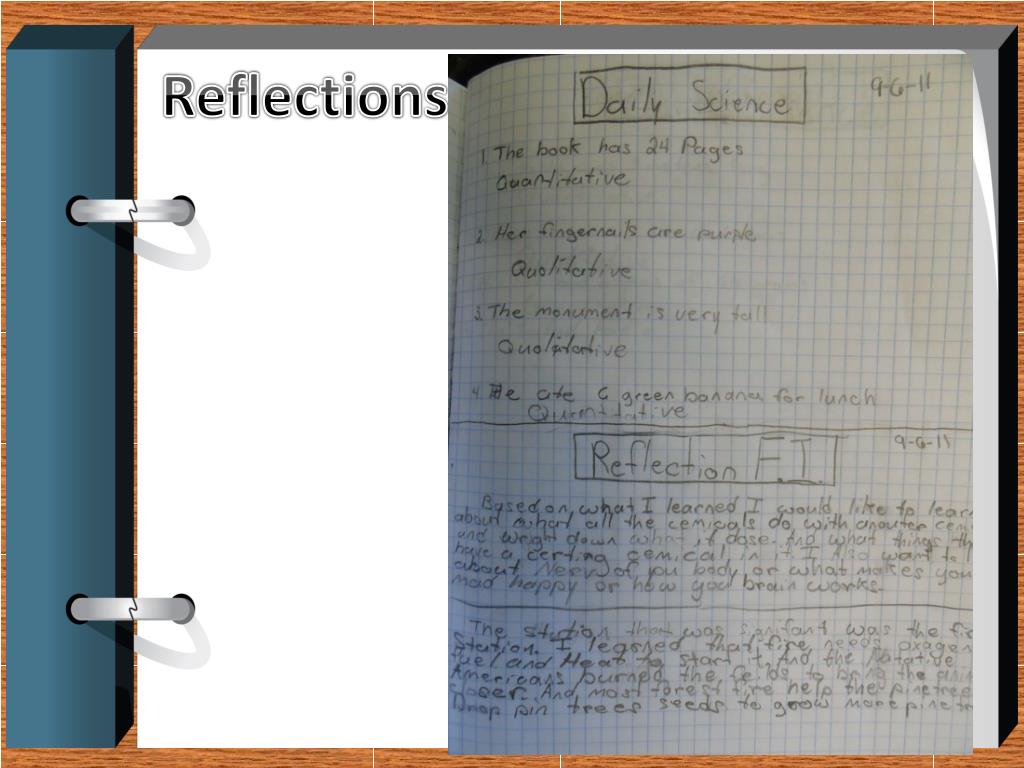 Reflections
Daily Science
9-6-11
1. The book has 24 Pages
Quantitative
2. Her fingernails are purple
Qualitative
3. The monument is very tall
Qualitative
4. He ate 6 green bananas for lunch
Quantitative
Reflection F.T.
9-6-11
Based on what I learned I would like to learn
about what all the cemicals do with anouter cem
and wright down what it dose. And what things th
have a certing cemical in it I also want to
about Nerv of you body or what makes you
mad happy or how you brain works.
The station that was sanifant was the fir
Station. I learned that fire needs oxagen
fuel and Heat to start it. And the Natative
Americans burned the feilds to bring the anim
closer. And most forest fire help the pinetree
Drop pin trees seeds to grow more pine tr